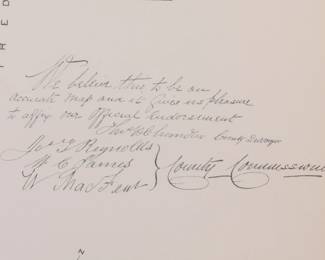 We believe this to be an
accurate map and it gives us pleasure
to affix our official endorsement
County Surveyor
Reynolds
W. C. James
W County Commissione